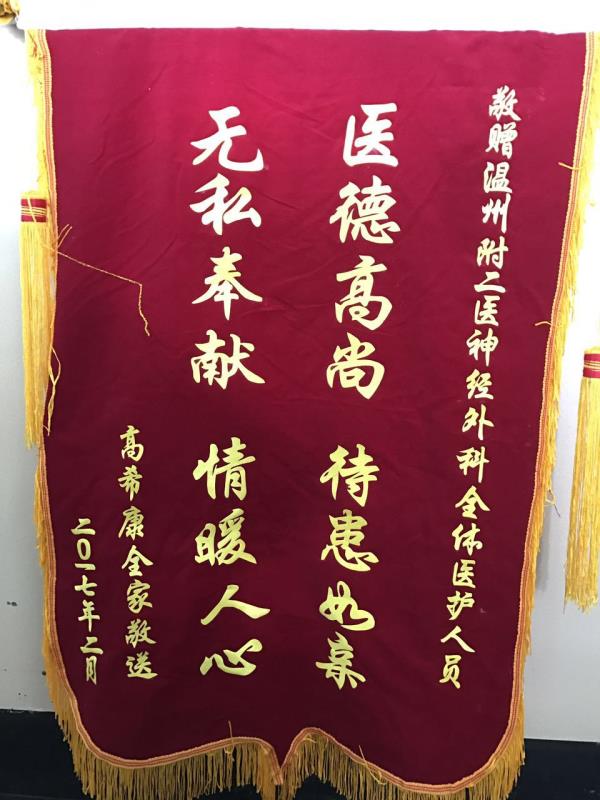 敬赠温州附二医神经外科全体医护人员
医德高尚 待患如亲
无私奉献 情暖人心
高希康全家敬送
二〇一七年二月